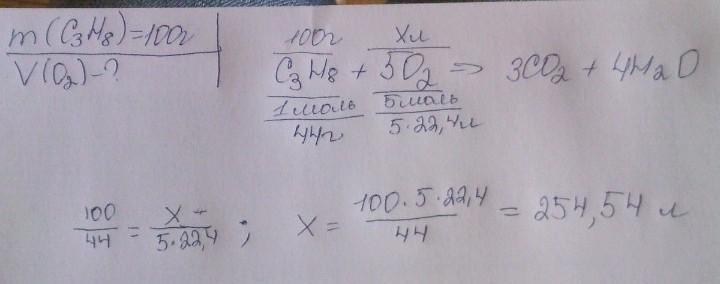 m(C₃H₈)=100г
V(O₂)-?
100г xл
C₃H₈ + 5O₂ => 3CO₂ + 4H₂O
1моль 5моль
44г 5·22,4л
100/44 = x/5·22,4 ; x = 100·5·22,4/44 = 254,54 л